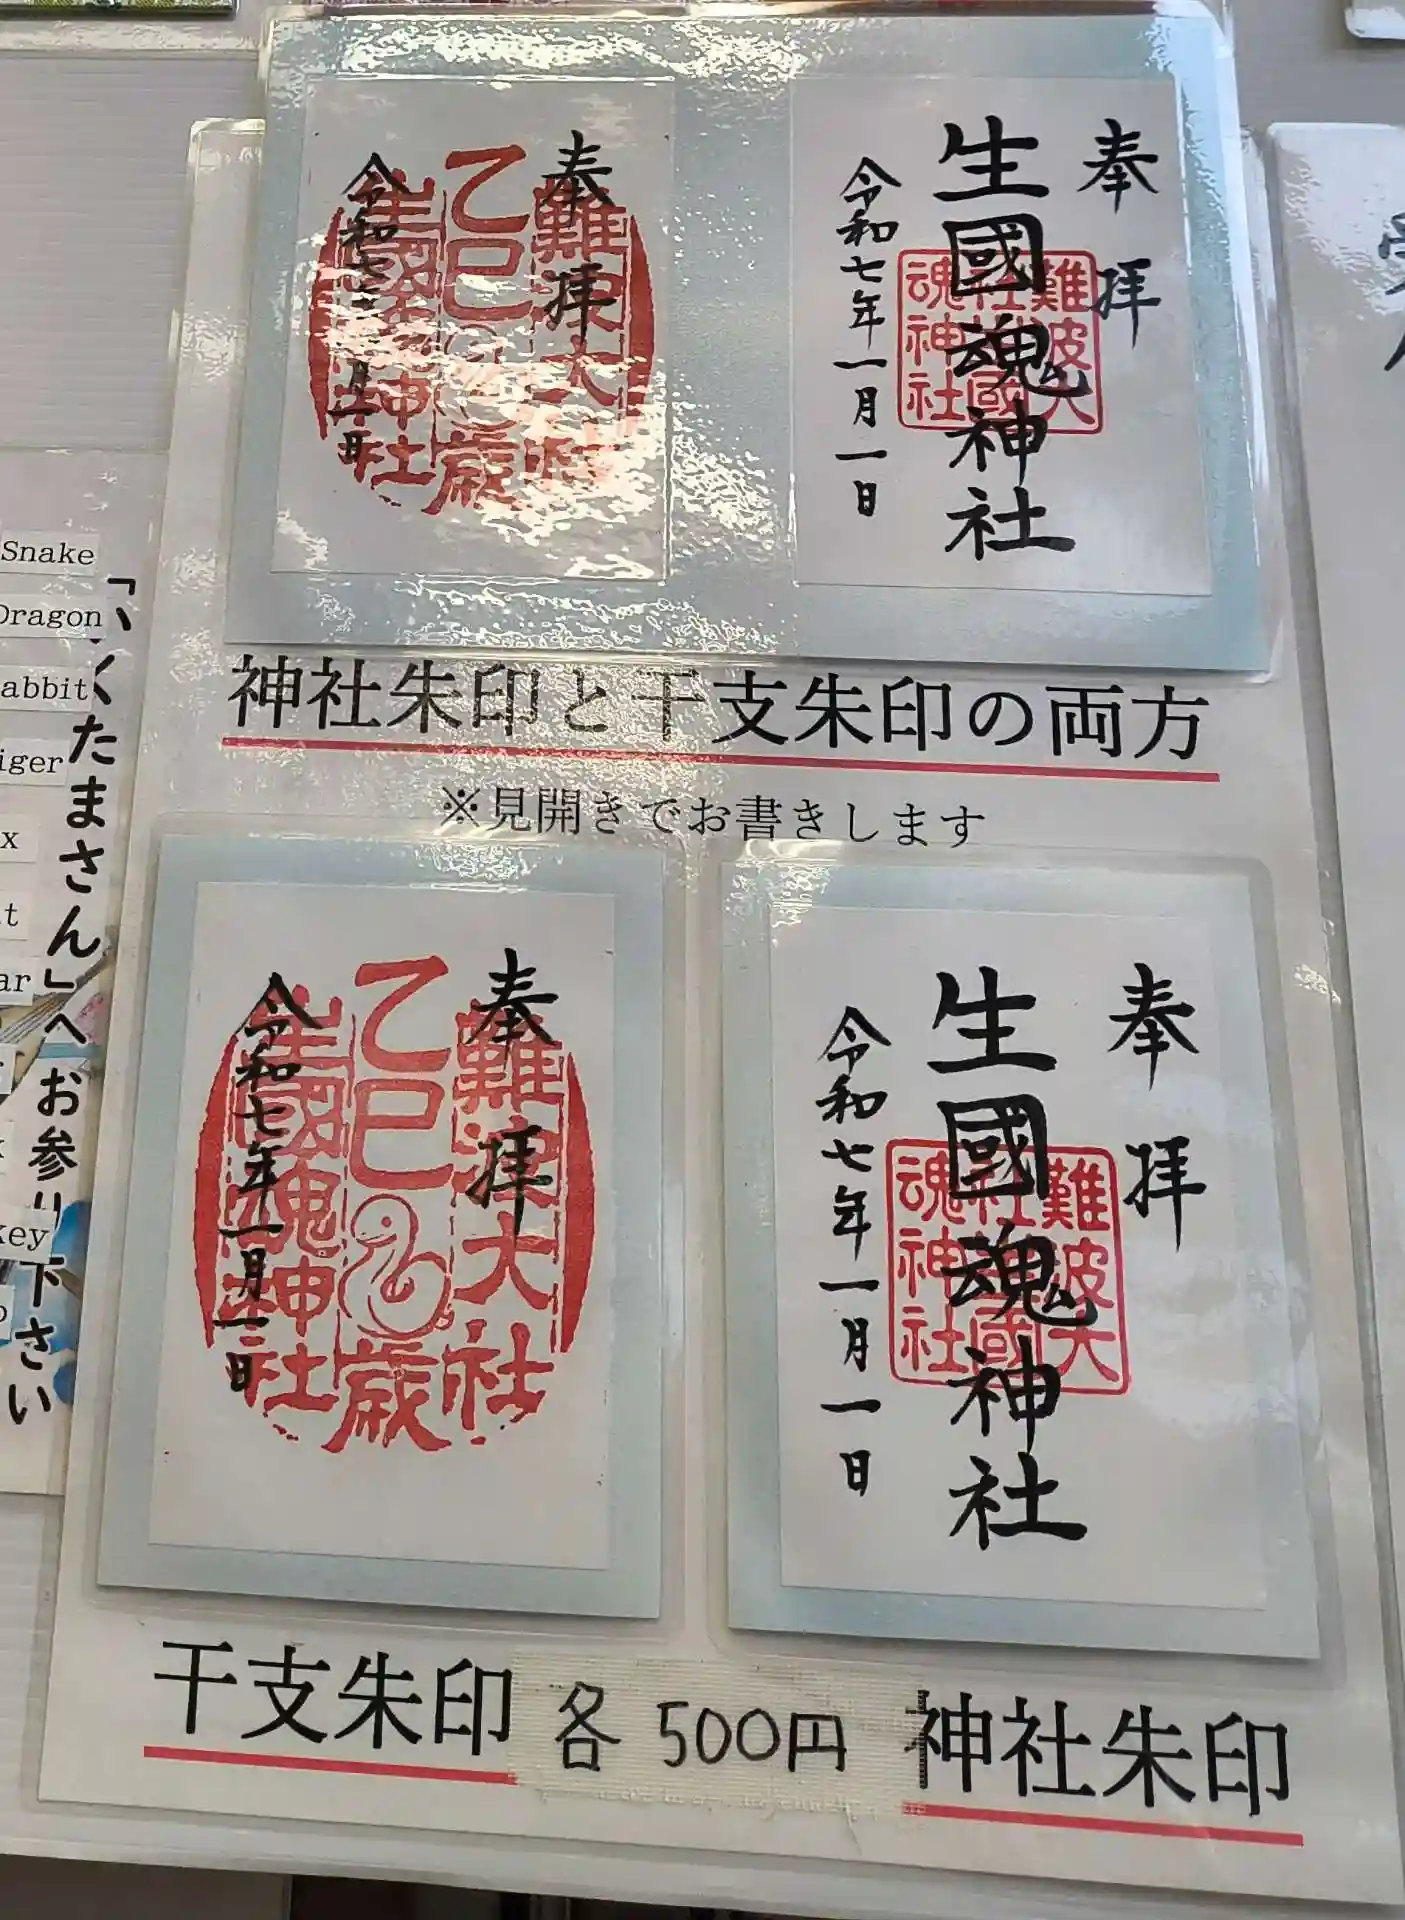 奉拝
乙巳
歳
令和七
生國魂神社
難波大社
奉拝
生國魂神社
難波大
魂神社
令和七年一月一日
神社朱印と干支朱印の両方
※見開きでお書きします
奉拝
難波大社
乙巳
歳
生國魂神社
令和七年一月一日
奉拝
生國魂神社
難波大
魂神社
令和七年一月一日
干支朱印
各 500円
神社朱印
Snake
Dragon
abbit
iger
x
t
ar
key
くたまさん」へお参り下さい